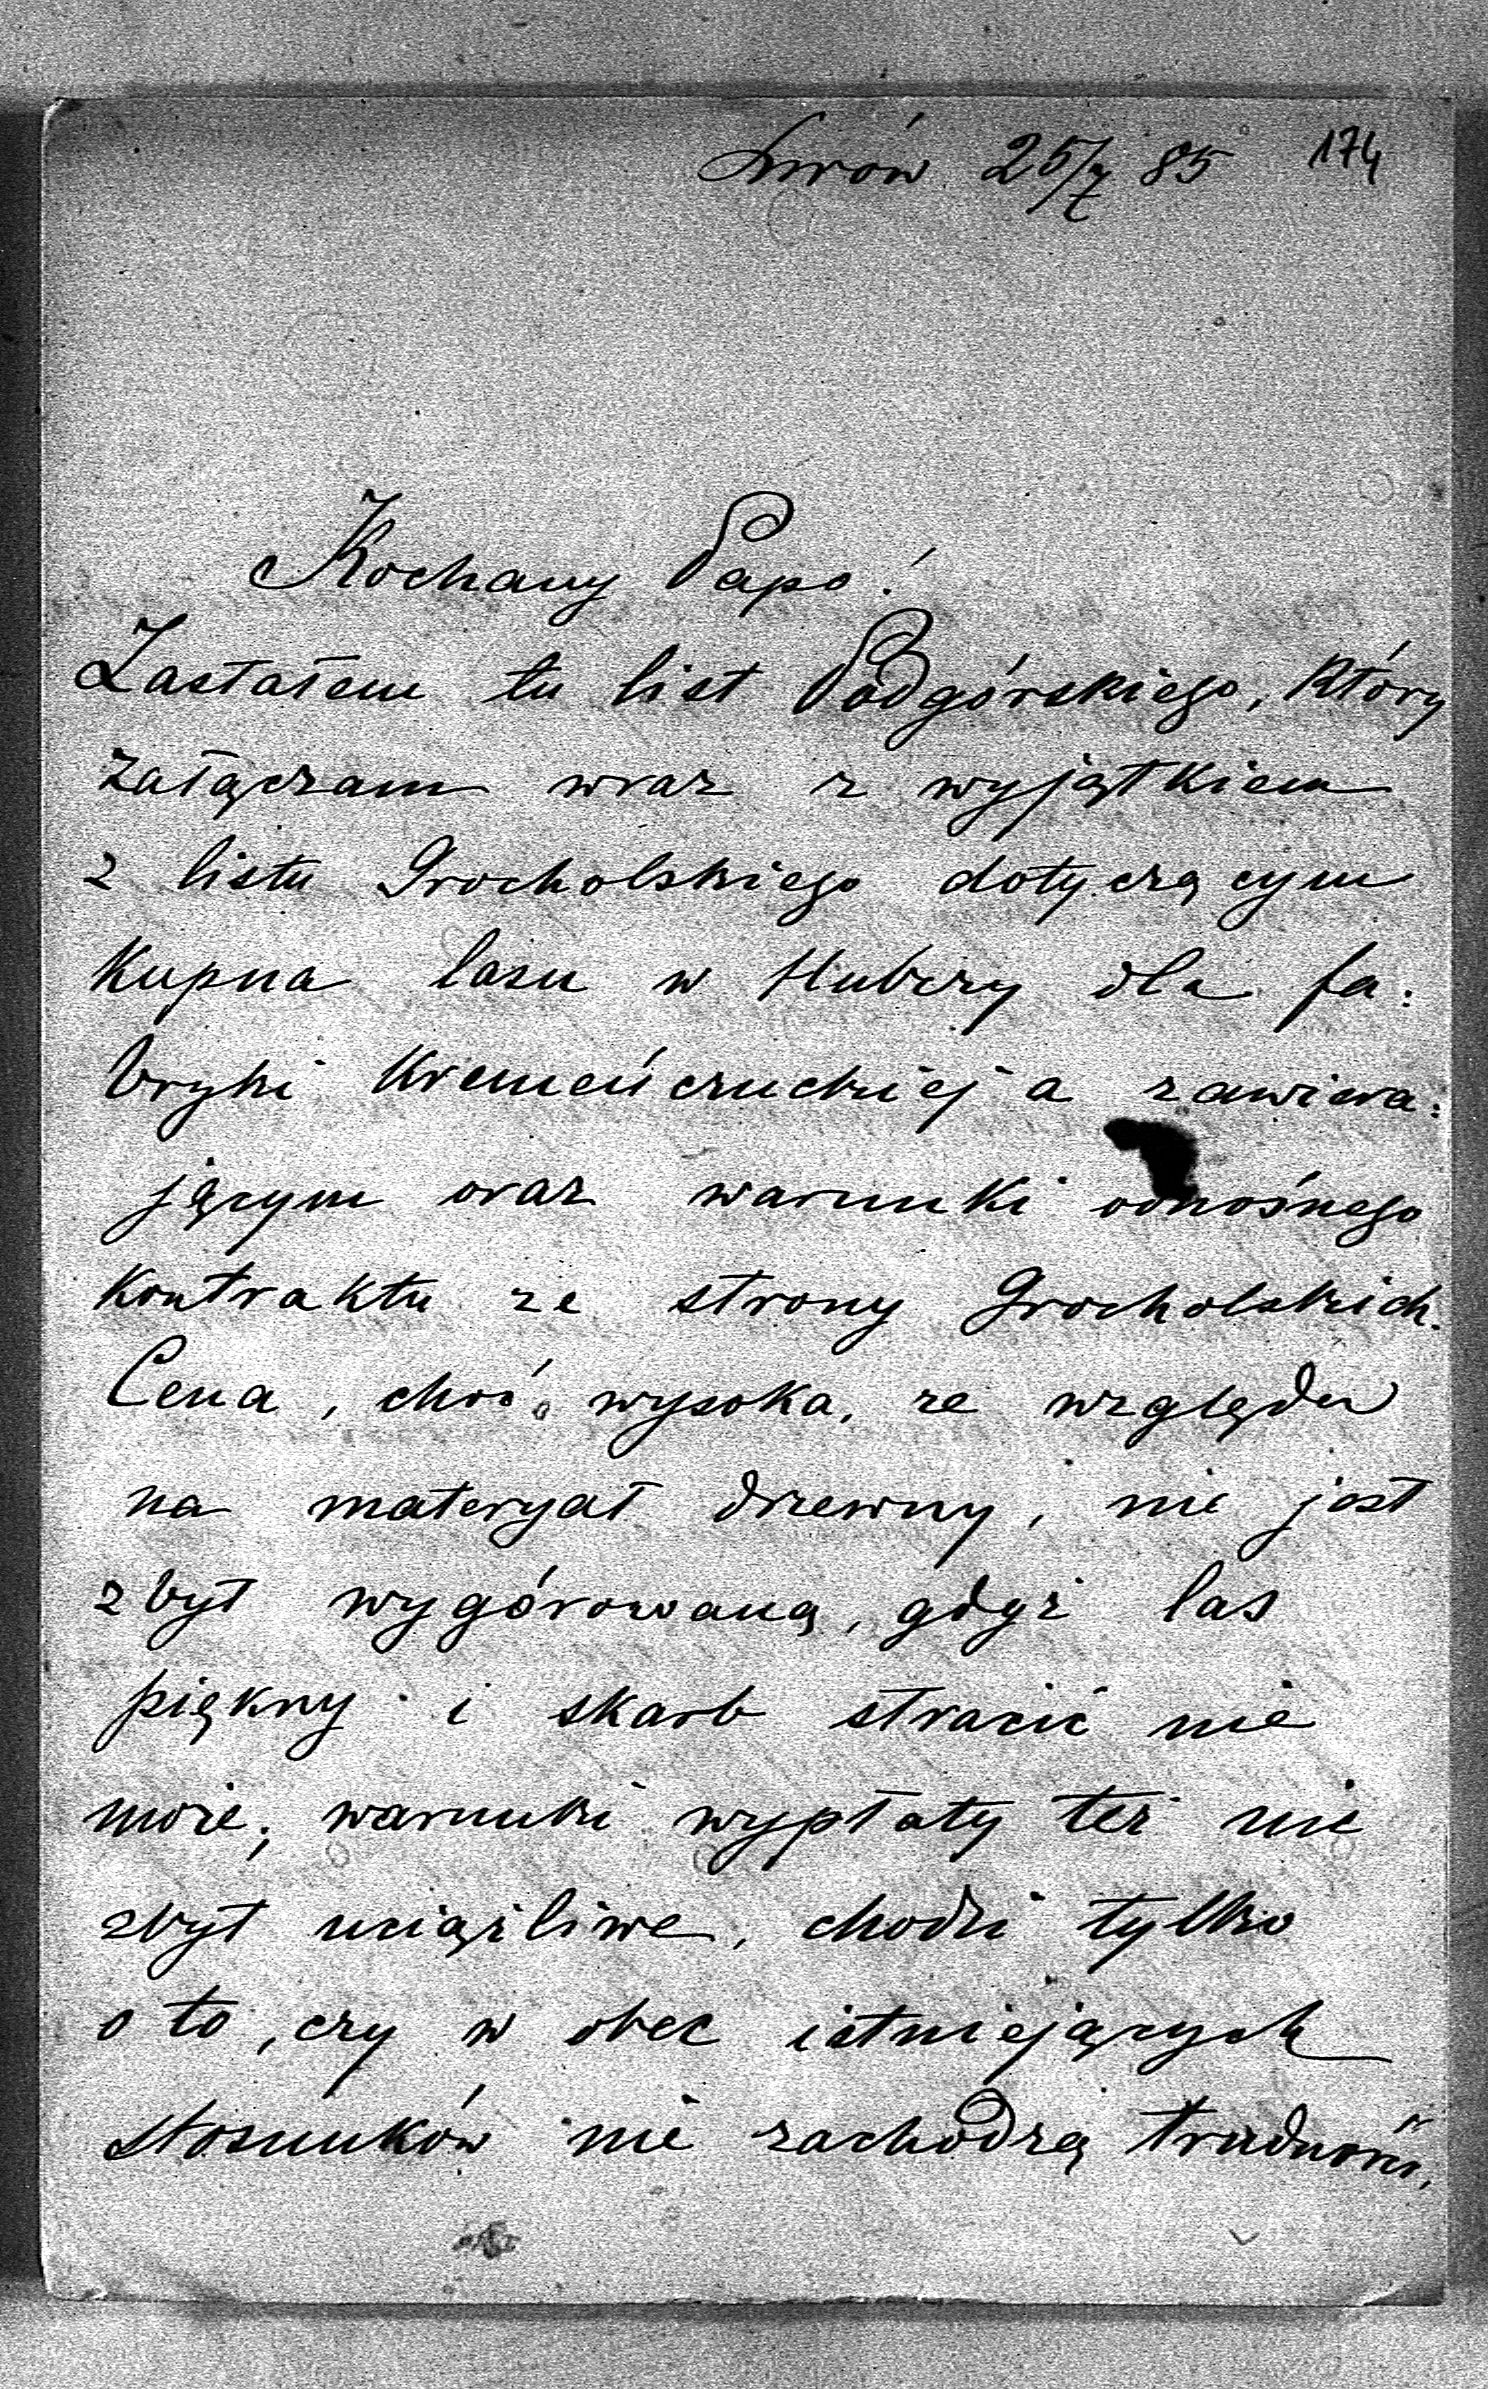 Lwów 25/7 85 174
Kochany Papo!
Zastałem tu list Podgórskiego, który
załączam wraz z wyjątkiem
z listu Grocholskiego dotyczącym
kupna lasu w Hubczy dla fa:
bryki Kremeńczuckiej a zawiera:
jącym oraz warunki odnośnego
kontraktu ze strony Grocholskich.
Cena, choć wysoka, ze względu
na materyał drzewny, nie jest
zbyt wygórowaną, gdyż las
piękny i skarb stracić nie
może; warunki wypłaty też nie
zbyt uciążliwe, chodzi tylko
o to, czy w obec istniejących
stosunków nie zachodzą trudności,